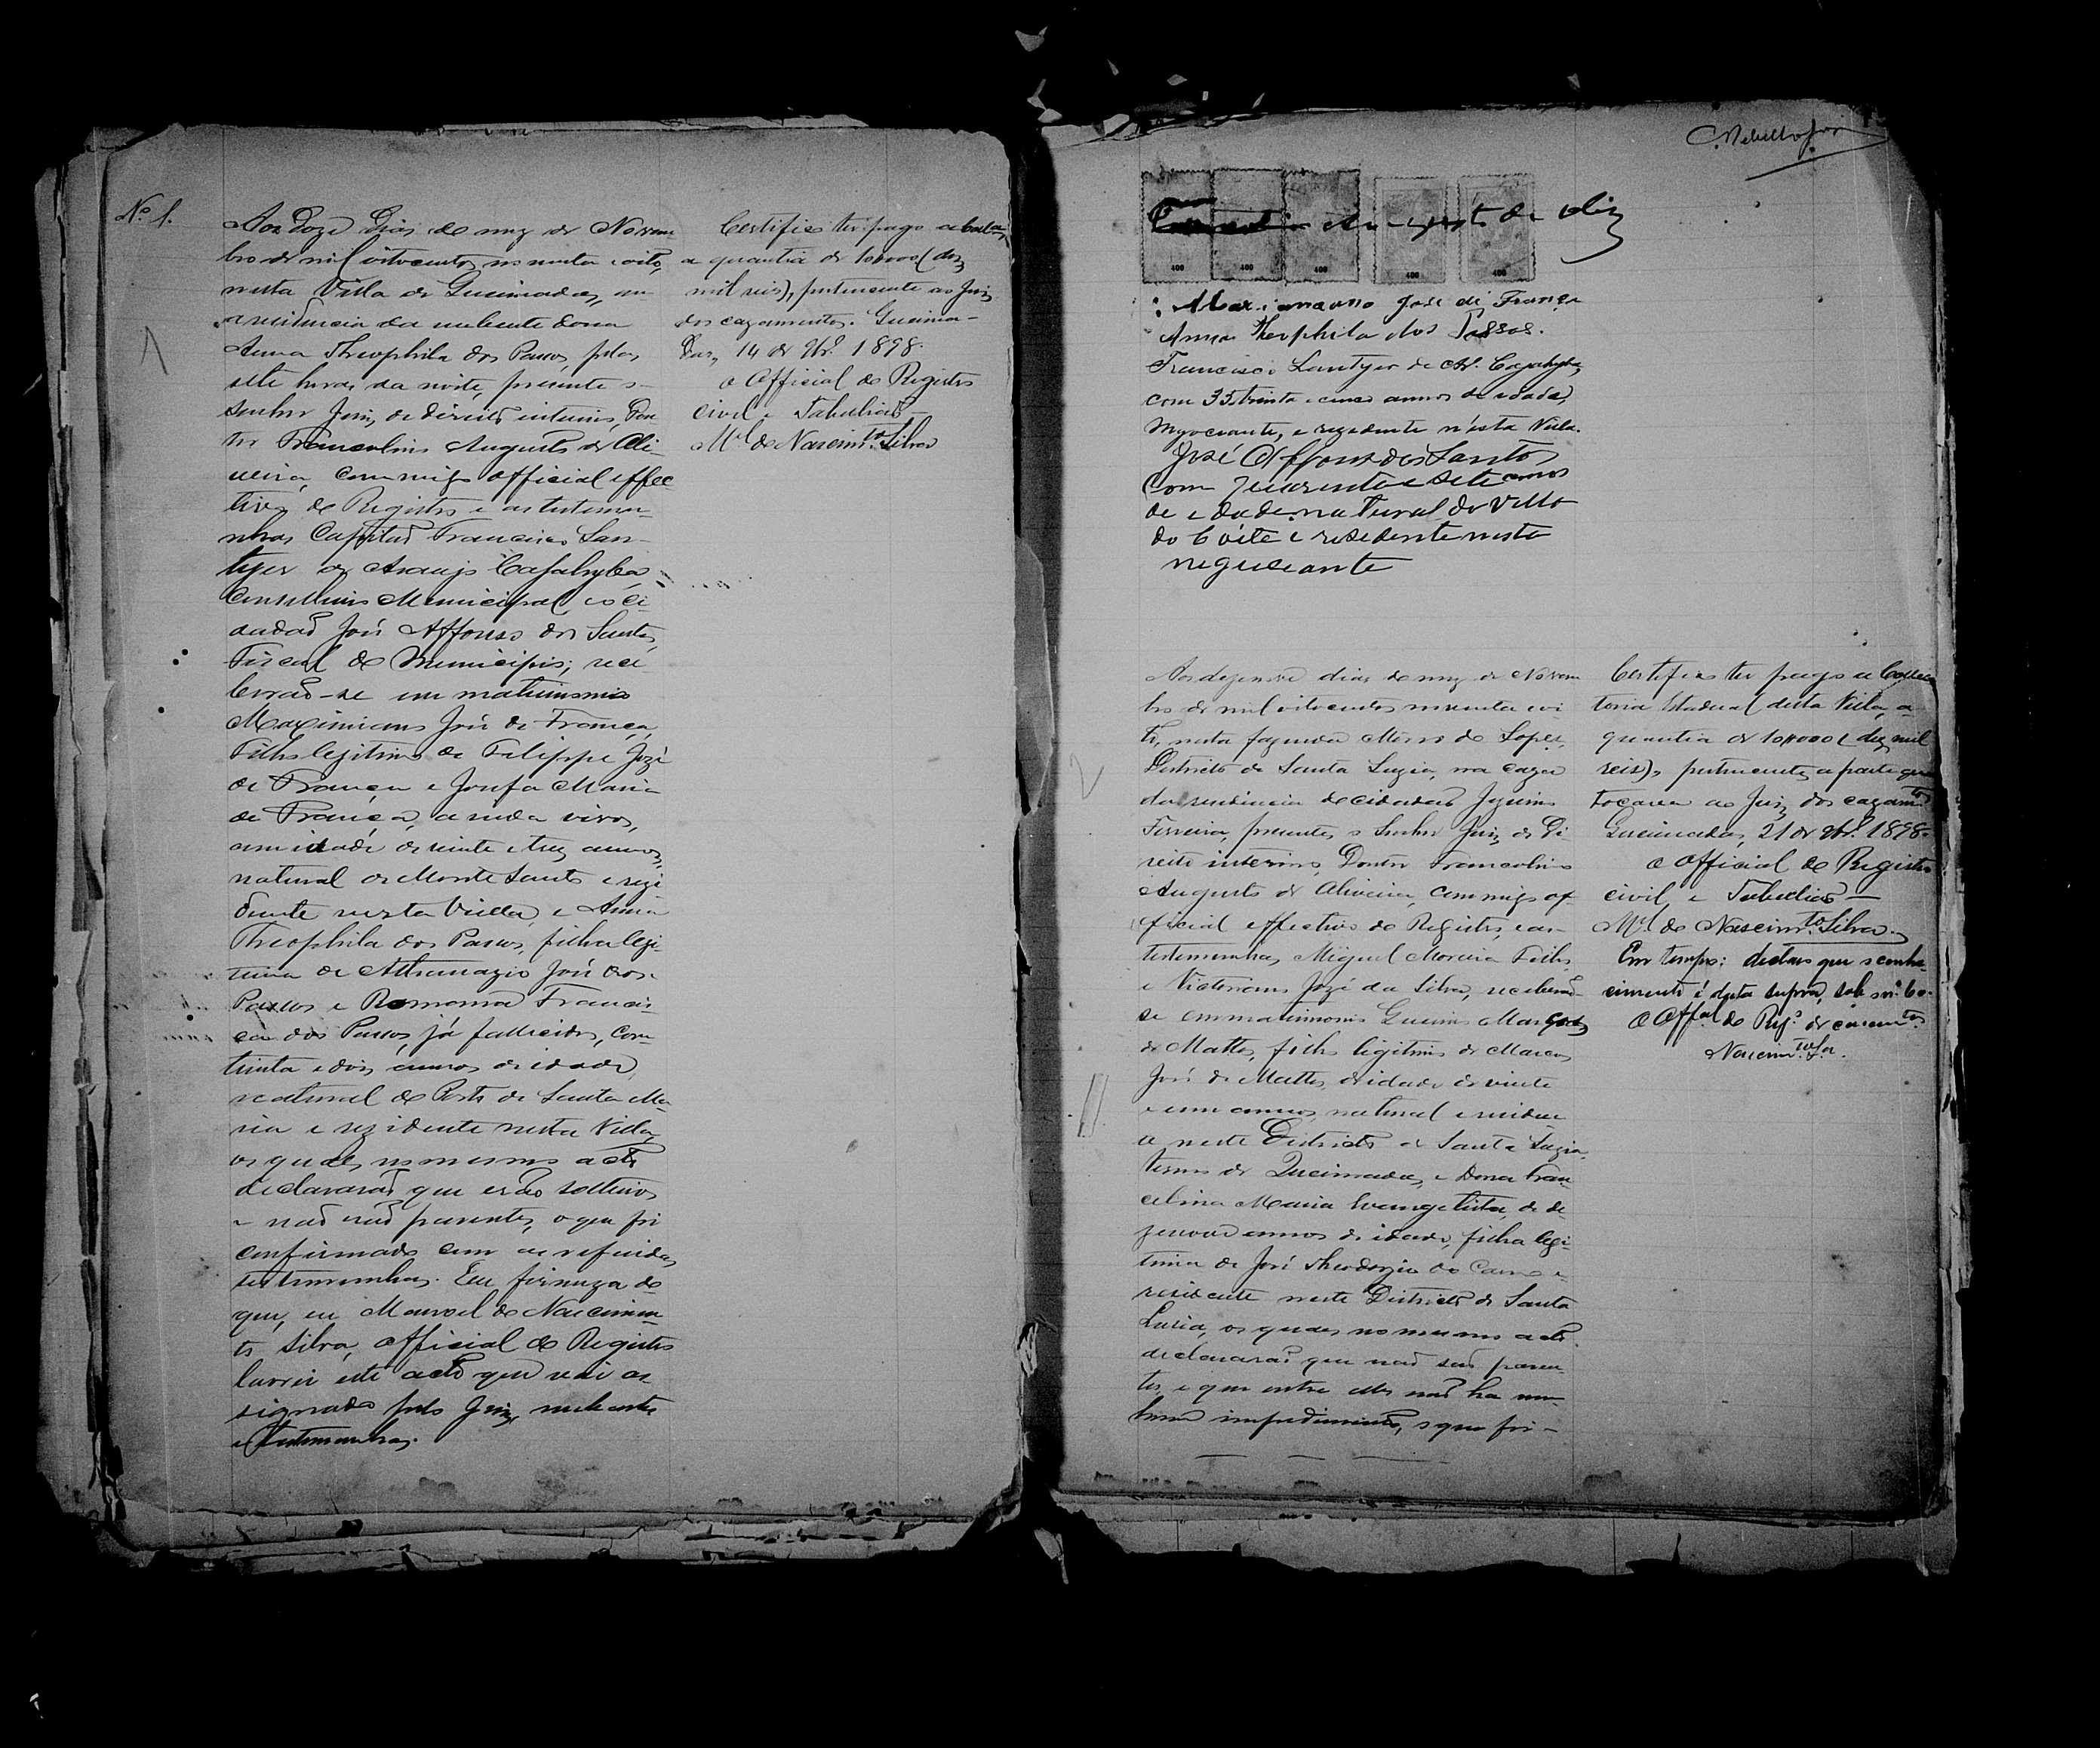 Nº 1.
Aos doze dias do mez de Novem
bro de mil oitocentos noventa e oito,
nesta Villa de Queimadas, em
a residencia da nubente dona
Anna Theophila dos Passos, pelas
sete horas da noite, presente o
Senhor Juiz de direito interino, Dou
tor Francolino Augusto de Oli-
veira, commigo official effec
tivo do Registro e as testemu-
nhas Capitão Francisco San-
tyer de Araujo Cajahyba,
Conselheiro Municipal, e o ci-
dadão José Affonso dos Santos,
Fiscal do Municipio; rece
berão-se em matrimonio
Maximiano José de França,
Filho legitimo de Felippe José
de França e Josefa Maria
de França, ainda vivos,
com idade de vinte e tres annos,
natural de Monte Santo e rezi
dente nesta Villa, e Anna
Theophila dos Passos, filha legi-
tima de Athanazio José dos
Passos e Romana Francis
ca dos Passos, já fallecidos, com
trinta e dois annos de idade,
natural de Porto de Santa Ma-
ria e rezidente nesta Villa,
os quaes no mesmo acto
declararão que erão solteiros
e não erão parentes, o que foi
confirmado com as referidas
testemunhas. Em firmeza do
que, eu Manoel do Nascimen-
to Silva, official do Registro
lavrei este acto que vai as
signado pelo Juiz, nubentes
e testemunhas.
Certifico ter pago
a quantia de 10#000 (dez
mil reis), pertencente ao Juiz
dos cazamentos. Queima-
das, 14 de 9br.º 1898.
O Official do Registro
civil e Tabellião
M.el do Nascim.to Silva
Augusto de
José de França
Anna Theophila dos Passos.
Francisco Santyer de Ar.º Cajahyba,
com 35 trinta e cinco annos de idade,
negociante, e rezidente n'esta Villa.
José Affonso dos Santos
com quarenta e sete annos
de edade natural da Villa
do Coite e residente nesta
negociante
Aos dezenove dias do mez de Novem
bro de mil oitocentos noventa e oi-
to, nesta fazenda Morro do Lopes,
Districto de Santa Luzia, na caza
da residencia do cidadão
Ferreira, presentes o Senhor Juiz de Di
reito interino, Doutor Francolino
Augusto de Oliveira, commigo of-
ficial effectivo do Registro, e as
testemunhas Miguel Moreira Filho
e Victoriano José da Silva, receberão-
se em matrimonio
de Mattos, filho legitimo de Marcos
José de Mattos, de idade de vinte
e um annos, natural e residen
te neste Districto de Santa Luzia,
termo de Queimadas, e Dona Fran
celina Maria Evangelista, de de-
zenove annos de idade, filha legi-
tima de José Theodozio do Carmo e
residente neste Districto de Santa
Luzia, os quaes no mesmo acto
declararão que não são paren
tes e que entre elles não ha ne-
nhum impedimento, o que foi-
Certifico ter pago a Collec
toria Estadual desta Villa, a
quantia de 10#000 (dez mil
reis), pertencente a parte que
tocava ao Juiz dos cazam.tos
Queimadas, 21 de 9br.º 1898.
O Official do Registro
civil e Tabellião
M.el do Nascim.to Silva.
Em tempo: declaro que o conhe-
cimento é data supra, sob nº 60.
O Off.al do Reg.º de casam.tos
Nascim.to S.a